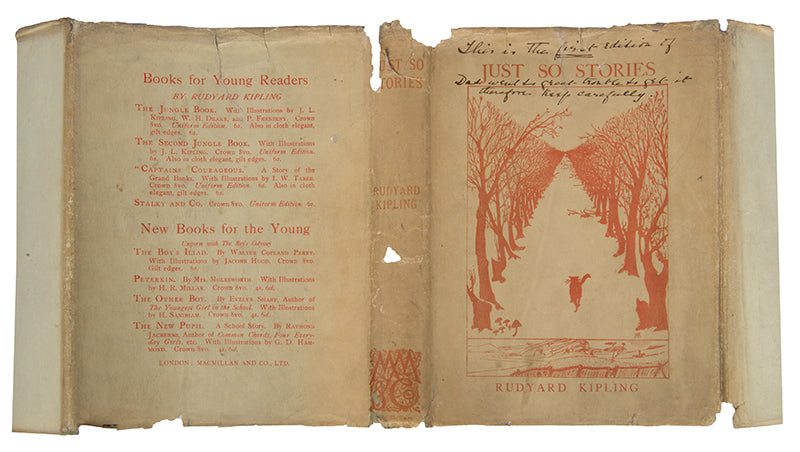 Books for Young Readers
BY RUDYARD KIPLING
THE JUNGLE BOOK. With Illustrations by J. L.
KIPLING, W. H. DRAKE, and P. FRENZENY. Crown
8vo. Uniform Edition. 6s. Also in cloth elegant,
gilt edges. 6s.
THE SECOND JUNGLE BOOK. With Illustrations
by J. L. KIPLING. Crown 8vo. Uniform Edition.
6s. Also in cloth elegant, gilt edges. 6s.
"CAPTAINS COURAGEOUS." A Story of the
Grand Banks. With Illustrations by I. W. TABER.
Crown 8vo. Uniform Edition. 6s. Also in cloth
elegant, gilt edges. 6s.
STALKY AND CO. Crown 8vo. Uniform Edition. 6s.
New Books for the Young
Uniform with The Boy's Odyssey
THE BOY'S ILIAD. By WALTER COPLAND PERRY.
With Illustrations by JACOMB HOOD. Crown 8vo.
Gilt edges. 6s.
PETERKIN. By MRS. MOLESWORTH. With Illustrations
by H. R. MILLAR. Crown 8vo. 4s. 6d.
THE OTHER BOY. By EVELYN SHARP, Author of
The Youngest Girl in the School. With Illustrations
by H. SANDHAM. Crown 8vo. 4s. 6d.
THE NEW PUPIL. A School Story. By RAYMOND
JACBERNS, Author of Common Chords, Four Every-
day Girls, etc. With Illustrations by G. D. HAM-
MOND. Crown 8vo. 4s. 6d.
LONDON: MACMILLAN AND CO., LTD.
JUST SO
STORIES
RUDYARD
KIPLING
This is the first edition of
JUST SO STORIES
Dad went to great trouble to get it
therefore keep carefully.
RUDYARD KIPLING